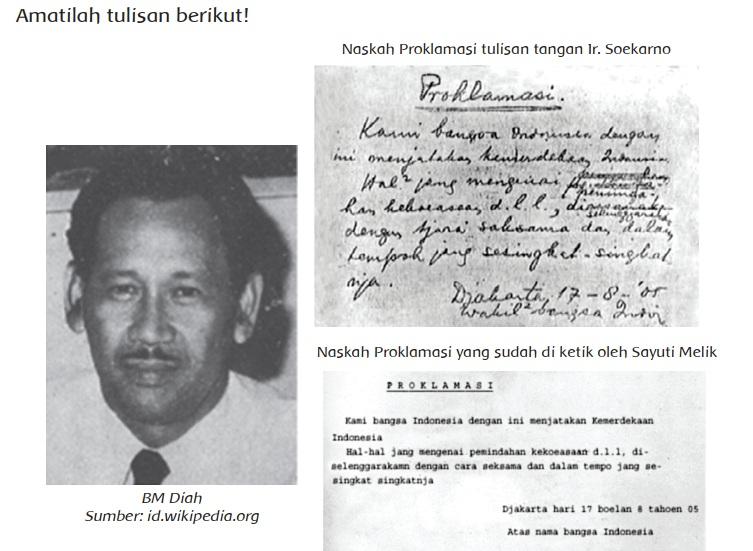 Amatilah tulisan berikut!
Naskah Proklamasi tulisan tangan Ir. Soekarno
Proklamasi.
Kami bangsa Indonesia dengan
ini menjatakan kemerdekaan Indonesia.
Hal² jang mengenai peminda-
han kekoeasaan d.l.l., diselenggarakan
dengan tjara saksama dan dalam
tempoh jang sesingkat-singkat
nja.
Djakarta, 17 - 8 - '05
Wakil² bangsa Indon
Naskah Proklamasi yang sudah di ketik oleh Sayuti Melik
PROKLAMASI
Kami bangsa Indonesia dengan ini menjatakan Kemerdekaan
Indonesia
Hal-hal jang mengenai pemindahan kekoeasaan d.l.l, di-
selenggarakamn dengan cara seksama dan dalam tempo jang se-
singkat singkatnja
Djakarta hari 17 boelan 8 tahoen 05
Atas nama bangsa Indonesia
BM Diah
Sumber: id.wikipedia.org